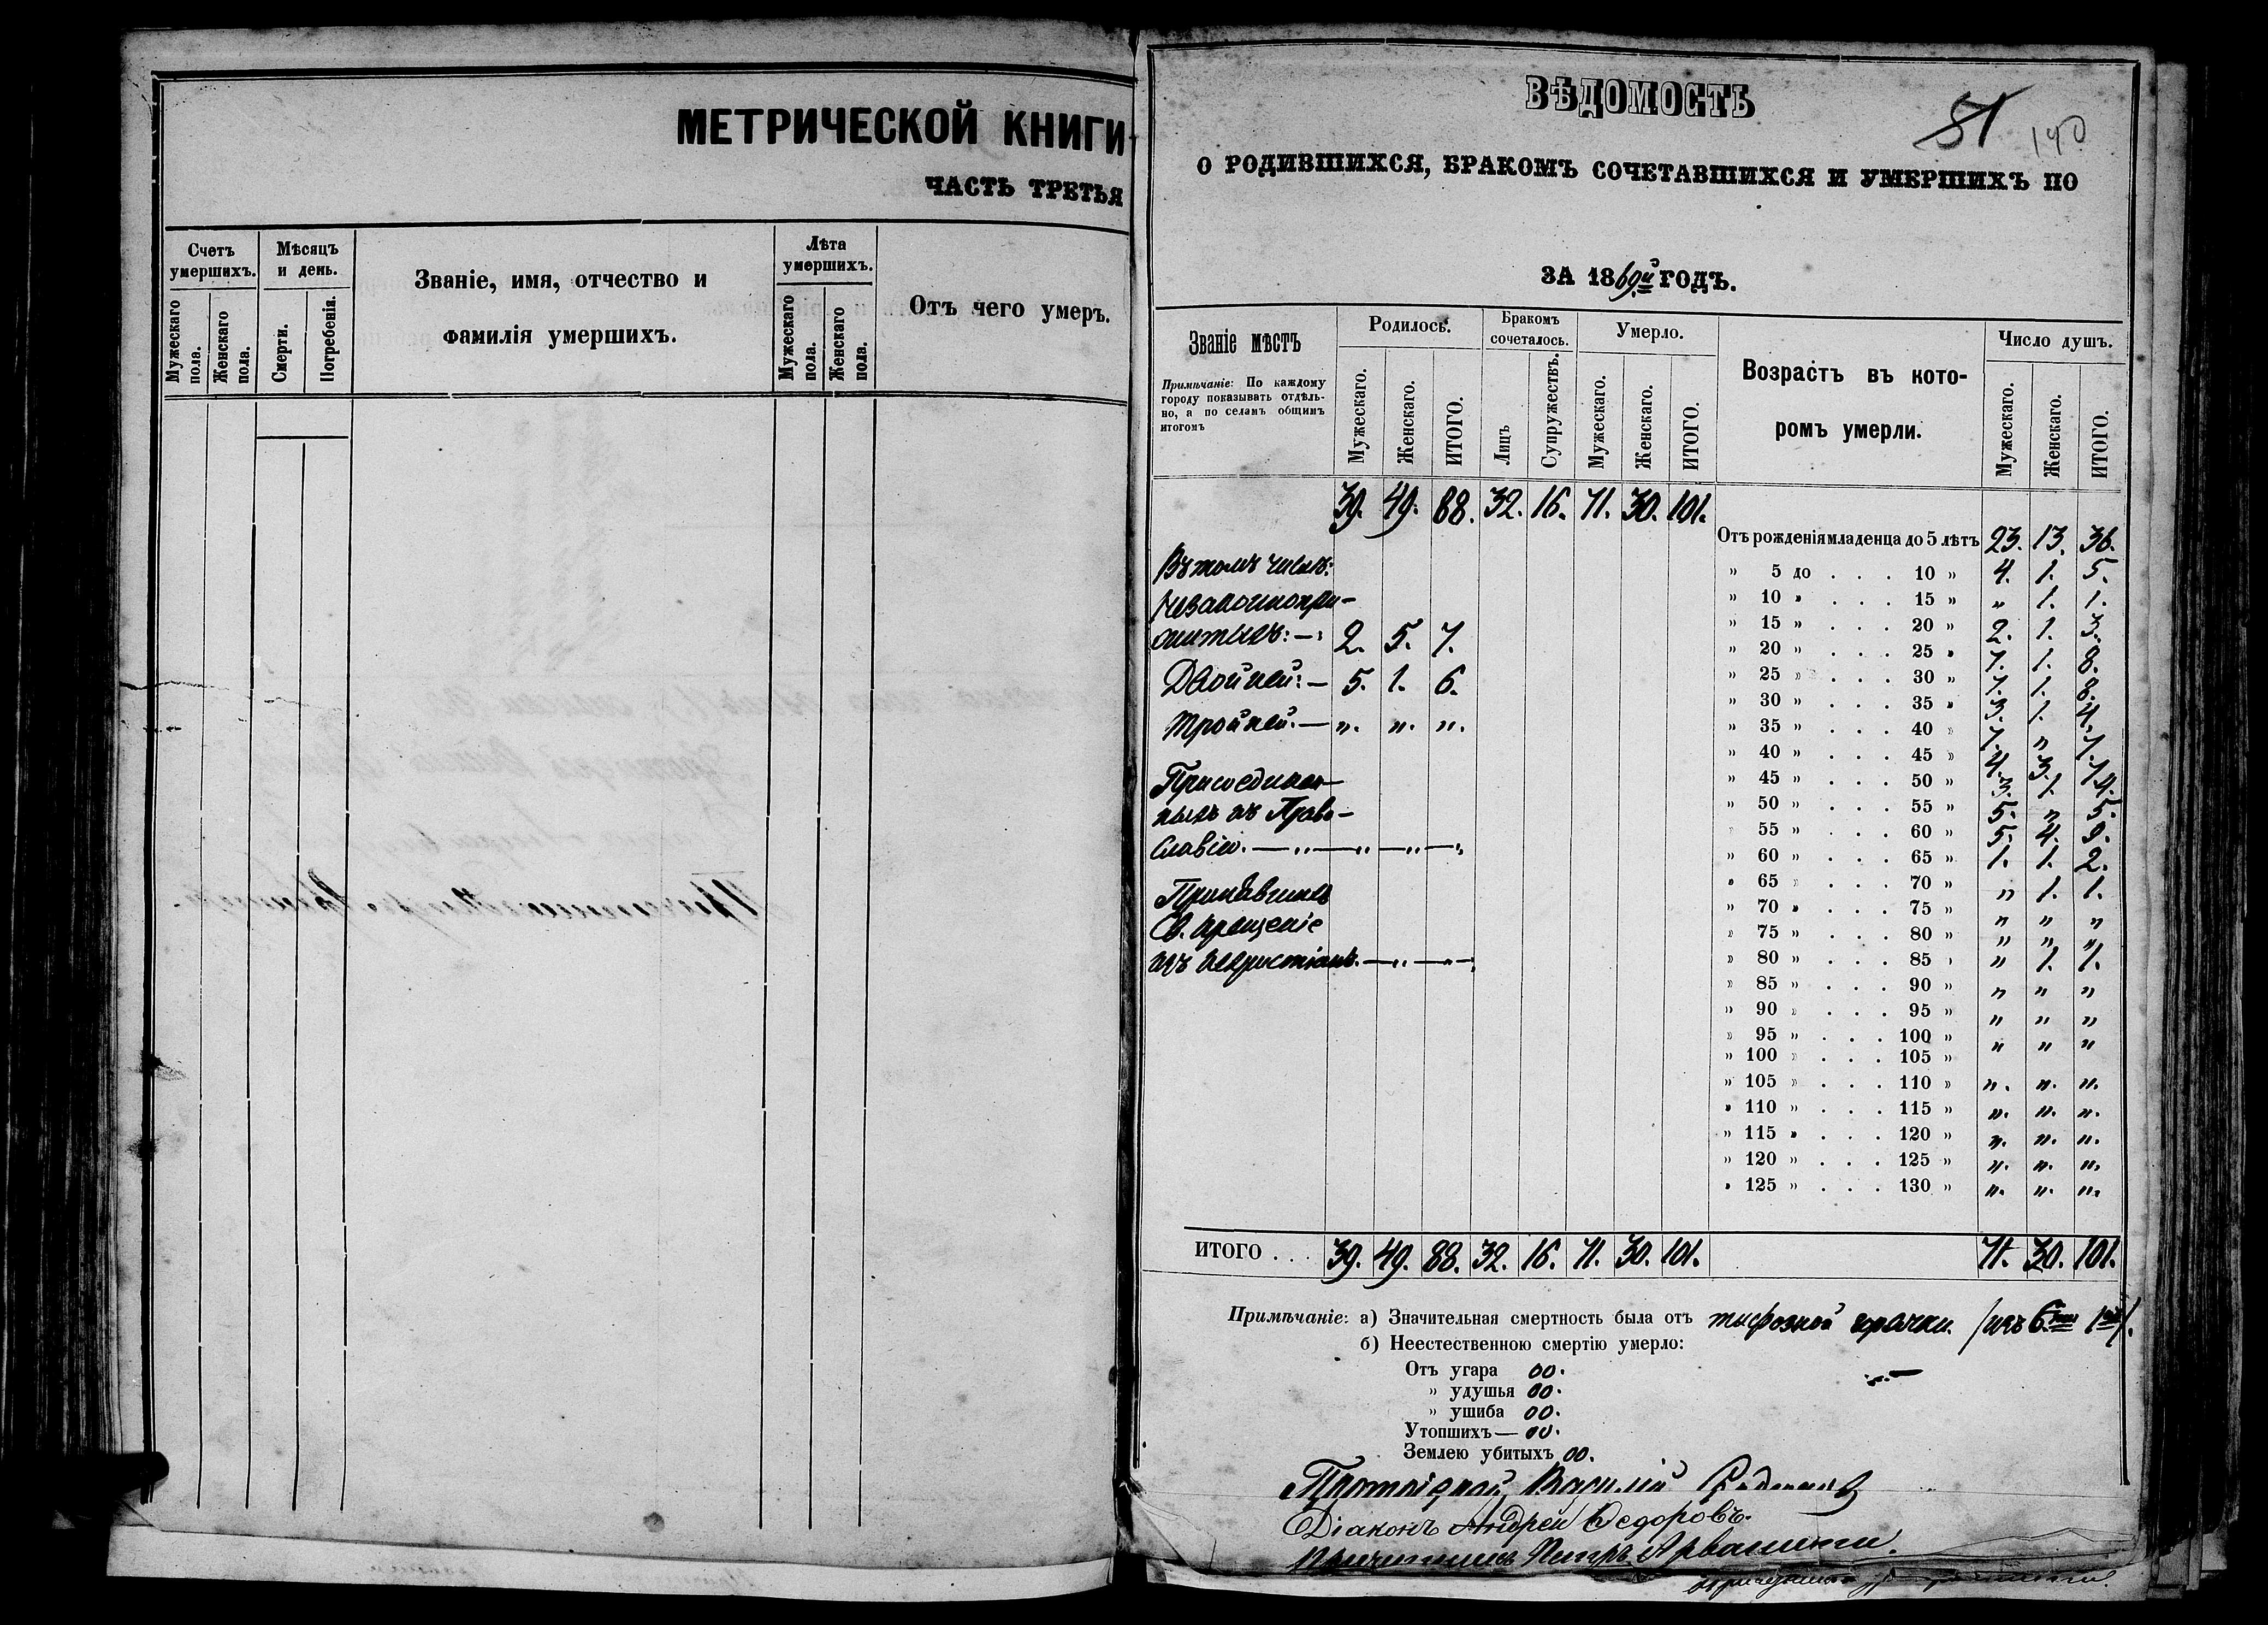 МЕТРИЧЕСКОЙ КНИГИ
ЧАСТЬ ТРЕТЬЯ
Счетъ умершихъ.
Мужескаго пола.
Женскаго пола.
Мѣсяцъ и день.
Смерти.
Погребенія.
Званіе, имя, отчество и
фамилія умершихъ.
Лѣта умершихъ.
Мужескаго пола.
Женскаго пола.
Отъ чего умеръ.
ВѢДОМОСТЬ
51 140
О РОДИВШИХСЯ, БРАКОМЪ СОЧЕТАВШИХСЯ И УМЕРШИХЪ ПО
ЗА 1869й ГОДЪ.
Званіе мѣстъ
Примѣчаніе: По каждому
городу показывать отдѣль-
но, а по селамъ общимъ
итогомъ
Родилось.
Мужескаго.
Женскаго.
ИТОГО.
Бракомъ сочеталось.
Лицъ
Супружествъ.
Умерло.
Мужескаго.
Женскаго.
ИТОГО.
Возрастъ въ кото-
ромъ умерли.
Число душъ.
Мужескаго.
Женскаго.
ИТОГО.
39. 49. 88. 32. 16. 71. 30. 101.
Въ томъ числѣ:
Незаконнопри-
житыхъ: — 2. 5. 7.
Двойней: — 5. 1. 6.
Тройней. — „. „. „.
Присоединен-
ныхъ къ Право-
славію. — „ — „ — „ — „
Принявшихъ
Св. Крещеніе
изъ нехристіанъ. — „ — „ —
Отъ рожденія младенца до 5 лѣтъ 23. 13. 36.
» 5 до . . . 10 » 4. 1. 5.
» 10 » . . . 15 » „ 1. 1.
» 15 » . . . 20 » 2. 1. 3.
» 20 » . . . 25 » 7. 1. 8.
» 25 » . . . 30 » 7. 1. 8.
» 30 » . . . 35 » 3. 1. 4.
» 35 » . . . 40 » 7. „ 7.
» 40 » . . . 45 » 4. 3. 7.
» 45 » . . . 50 » 3. 1. 4.
» 50 » . . . 55 » 5. „ 5.
» 55 » . . . 60 » 5. 4. 9.
» 60 » . . . 65 » 1. 1. 2.
» 65 » . . . 70 » „ 1. 1.
» 70 » . . . 75 » „ „ „
» 75 » . . . 80 » „ „ „
» 80 » . . . 85 » „ 1. 1.
» 85 » . . . 90 » „ „ „
» 90 » . . . 95 » „ „ „
» 95 » . . . 100 » „ „ „
» 100 » . . . 105 »
» 105 » . . . 110 » „. „. „.
» 110 » . . . 115 » „. „. „.
» 115 » . . . 120 » „. „. „.
» 120 » . . . 125 » „. „. „.
» 125 » . . . 130 » „. „. „.
ИТОГО . . . 39. 49. 88. 32. 16. 71. 30. 101. 71. 30. 101.
Примѣчаніе: а) Значительная смертность была отъ тифозной горячки. /изъ 6ти 1
б) Неестественною смертію умерло:
Отъ угара 00.
» удушья 00.
» ушиба 00.
Утопшихъ — 00.
Землею убитыхъ 00.
Протоіерей Василій
Діаконъ Андрей Ѳедоровъ.
Причетникъ Петръ